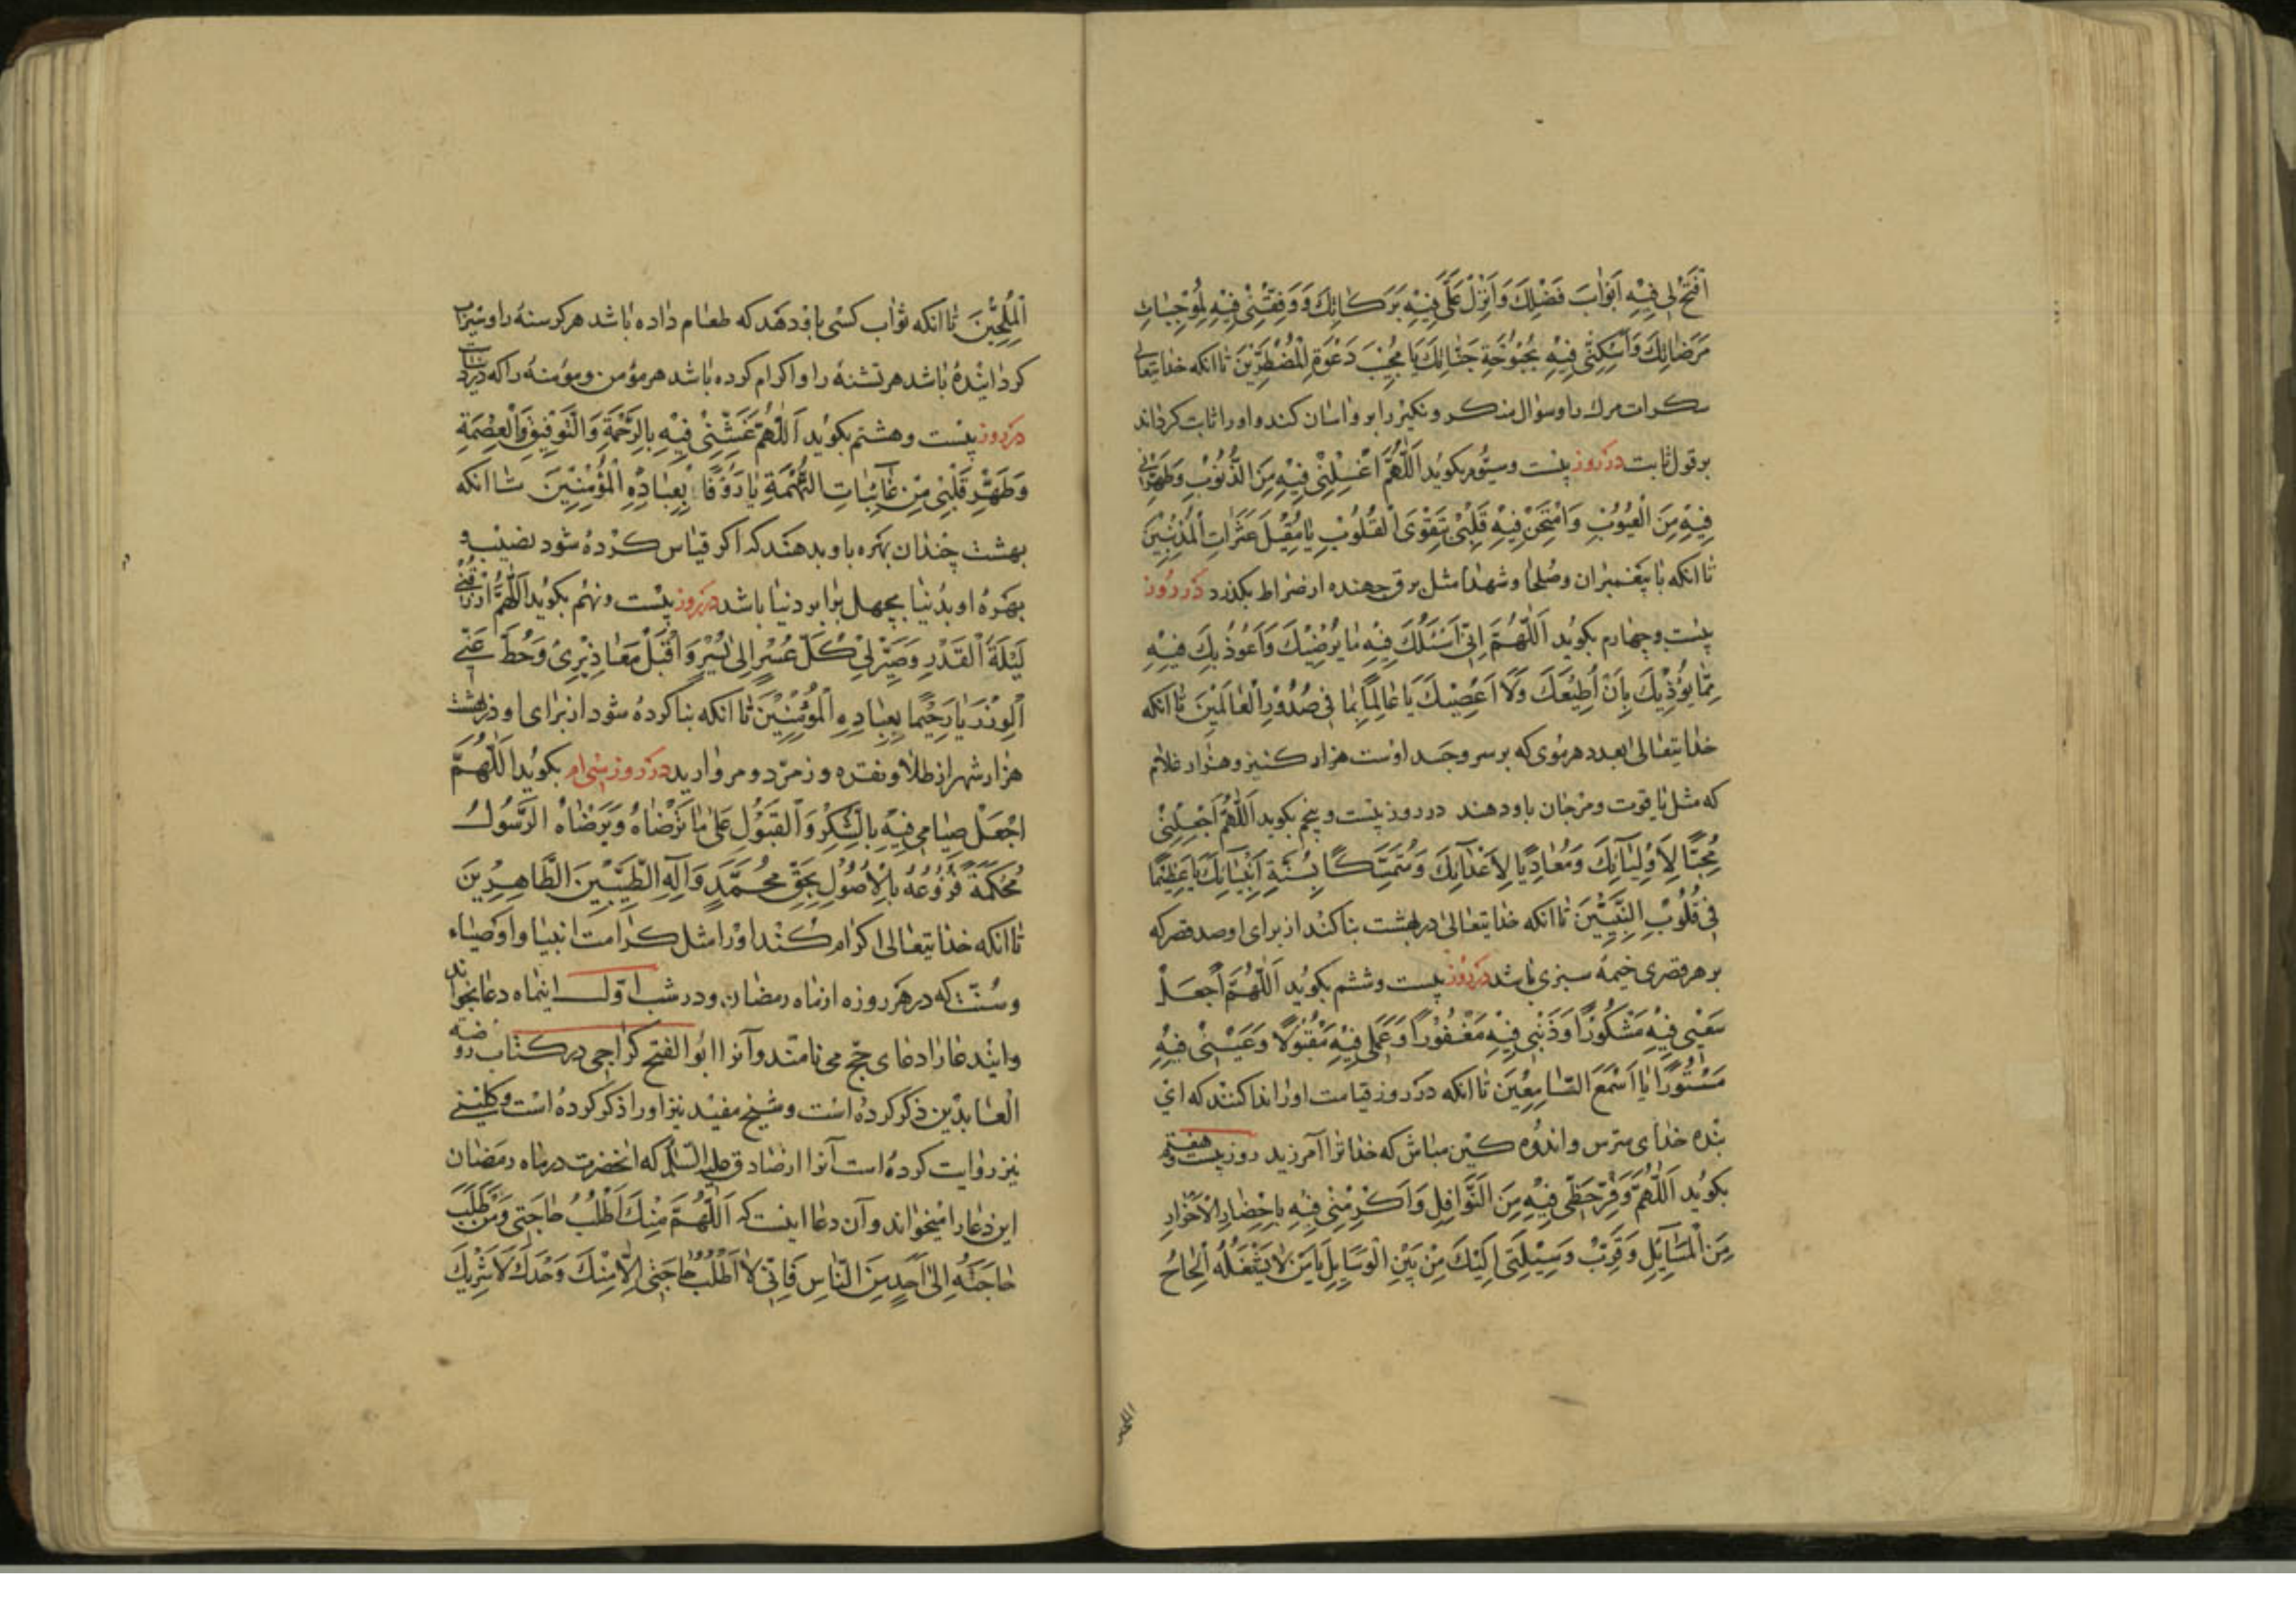 اَفْتَحْ لِی فِیْهِ اَبْوٰابَ فَضْلِكَ وَاَنْزِلْ عَلَیَّ فِیْهِ بَرَكٰاتِكَ وَوَفِّقْنِیْ فِیْهِ لِمُوْجِبٰاتِ
مَرَضٰاتِكَ وَاَسْكِنِّی فِیْهِ بُحْبُوْحَةِ جَنّٰاتِكَ یَا مُجِیْبَ دَعْوَةِ الْمُضْطَرِّیْنَ تاانكه خدایتعالی
سكرات مرك را وسوال منكر ونكیر را بر واسان كند واورا ثابت كرداند
بر قول ثابت در روز بیست وسیّوم بكوید اَللّٰهُمَّ اغْسِلْنِیْ فِیْهِ مِنَ الذُّنُوْبِ وَطَهِّرْنِی
فِیْهِ مِنَ الْعُیُوْبِ وَامْتَحِنْ فِیْهِ قَلْبِیْ بِتَقْوَی الْقُلُوْبِ یٰا مُقِیْلَ عَثَرٰاتِ الْمُذْنِبِیْنَ
تاانكه با پیغمبران وصلحا وشهدا مثل برق جهنده از صراط بكذرد در روز
بیست وچهارم بكوید اَللّٰهُمَّ اِنّی اَسْئَلُكَ فِیْهِ مٰا یُرْضِیْكَ وَاَعُوْذُ بِكَ فِیْهِ
مِمّٰا یُؤْذِیْكَ بِاَنْ اُطِیْعَكَ وَلَا اَعْصِیْكَ یَا عٰالِمًا بِمٰا فی صُدُوْرِ الْعٰالَمِیْنَ تاانكه
خدایتعالی بعدد هر موی كه بر سر وجسد اوست هزار كنیز وهزار غلام
كه مثل یاقوت ومرجان باو دهند در روز بیست وپنجم بكوید اَللّٰهُمَّ اجْعَلْنِیْ
مُحِبًّا لِاَوْلِیٰآئِكَ وَمُعٰادِیًا لِاَعْدٰآئِكَ وَمُتَمَسِّكًا بِسُنَّةِ اَنْبِیٰآئِكَ یَا عَظِیْمًا
فِی قُلُوْبِ النَّبِیِّیْنَ تاانكه خدایتعالی در بهشت بنا كند از برای او صد قصر كه
بر هر قصری خیمهٔ سبزی باشد در روز بیست وششم بكوید اَللّٰهُمَّ اجْعَلْ
سَعْیِی فِیْهِ مَشْكُوْرًا وَذَنْبِی فِیْهِ مَغْفُوْرًا وَعَمَلِی فِیْهِ مَقْبُوْلًا وَعَیْبِیْ فِیْهِ
مَسْتُوْرًا یٰا اَسْمَعَ السّٰامِعِیْنَ تاانكه در روز قیامت اورا ندا كنند كه ای
بنده خدای مترس واندوه كین مباش كه خدا ترا آمرزید روز بیست وهفتم
بكوید اَللّٰهُمَّ وَفِّرْ حَظِّی فِیْهِ مِنَ النَّوٰافِلِ وَاَكْرِمْنِی فِیْهِ بِاِحْضٰارِ الْاَحْرٰارِ
مِنَ الْمَسٰآئِلِ وَقَرِّبْ وَسِیْلَتِی اِلَیْكَ مِنْ بَیْنِ الْوَسٰایِلِ یٰا مَنْ لٰا یَشْغَلُهُ اِلْحٰاحُ
الْمُلِحِّیْنَ تاانكه ثواب كسی باو دهند كه طعام داده باشد هر كرسنه را وسیراب
كردانیده باشد هر تشنه را واكرام كرده باشد هر مؤمن ومؤمنه را كه در دنیاست
در روز بیست وهشتم بكوید اَللّٰهُمَّ غَشِّنِیْ فِیْهِ بِالرَّحْمَةِ وَالتَّوْفِیْقِ وَالْعِصْمَةِ
وَطَهِّرْ قَلْبِیْ مِنْ غٰائِبٰاتِ التُّهْمَةِ یٰا رَؤُفًا بِعِبٰادِهِ الْمُؤْمِنِیْنَ تاانكه
بهشت چندان بهره باو بدهند كه اكر قیاس كرده شود نصیب و
بهره او بدنیا بچهل برابر دنیا باشد در روز بیست ونهم بكوید اَللّٰهُمَّ ارْزُقْنِی
لَیْلَةَ الْقَدْرِ وَصَیِّرْ لِیْ كُلَّ عُسْرٍ اِلٰی یُسْرٍ وَاقْبَلْ مَعٰاذِیْرِیْ وَحُطَّ عَنّی
الْوِزْرَ یٰا رَحِیْمًا بِعِبٰادِهِ الْمُؤْمِنِیْنَ تاانكه بنا كرده شود از برای او در بهشت
هزار شهر از طلا ونقره وزمرّد ومروارید در روز سی‌ام بكوید اَللّٰهُمَّ
اجْعَلْ صِیٰامِی فِیْهِ بِالشُّكْرِ وَالْقَبُوْلِ عَلیٰ مٰا تَرْضٰاهُ وَیَرْضٰاهُ الرَّسُوْلُ
مُحْكَمَةً فُرُوْعُهُ بِالْاُصُوْلِ بِحَقِّ مُحَمَّدٍ وَآلِهِ الطَّیِّبِیْنَ الطَّاهِرِیْنَ
تاانكه خدایتعالی اكرام كند اورا مثل كرامت انبیا واوصیاء
وسُنّت كه در هر روزه از ماه رمضان ودر شب اوّل اینماه دعا بخواند
واین دعا را دعای حجّ می نامند وآنرا ابو الفتح كراجی در كتاب روضه
العابدین ذكر كرده است وشیخ مفید نیز اورا ذكر كرده است وكلینی
نیز روایت كرده است آنرا از صادق علیه السّلم كه انحضرت در ماه رمضان
این دعا را میخواند وآن دعا اینست كه اَللّٰهُمَّ مِنْكَ اَطْلُبُ حٰاجَتِی وَمَنْ طَلَبَ
حٰاجَتَهُ اِلٰی اَحَدٍ مِنَ النّٰاسِ فَاِنّی لٰا اَطْلُبُ حٰاجَتِی اِلّٰا مِنْكَ وَحْدَكَ لَا شَرِیْكَ